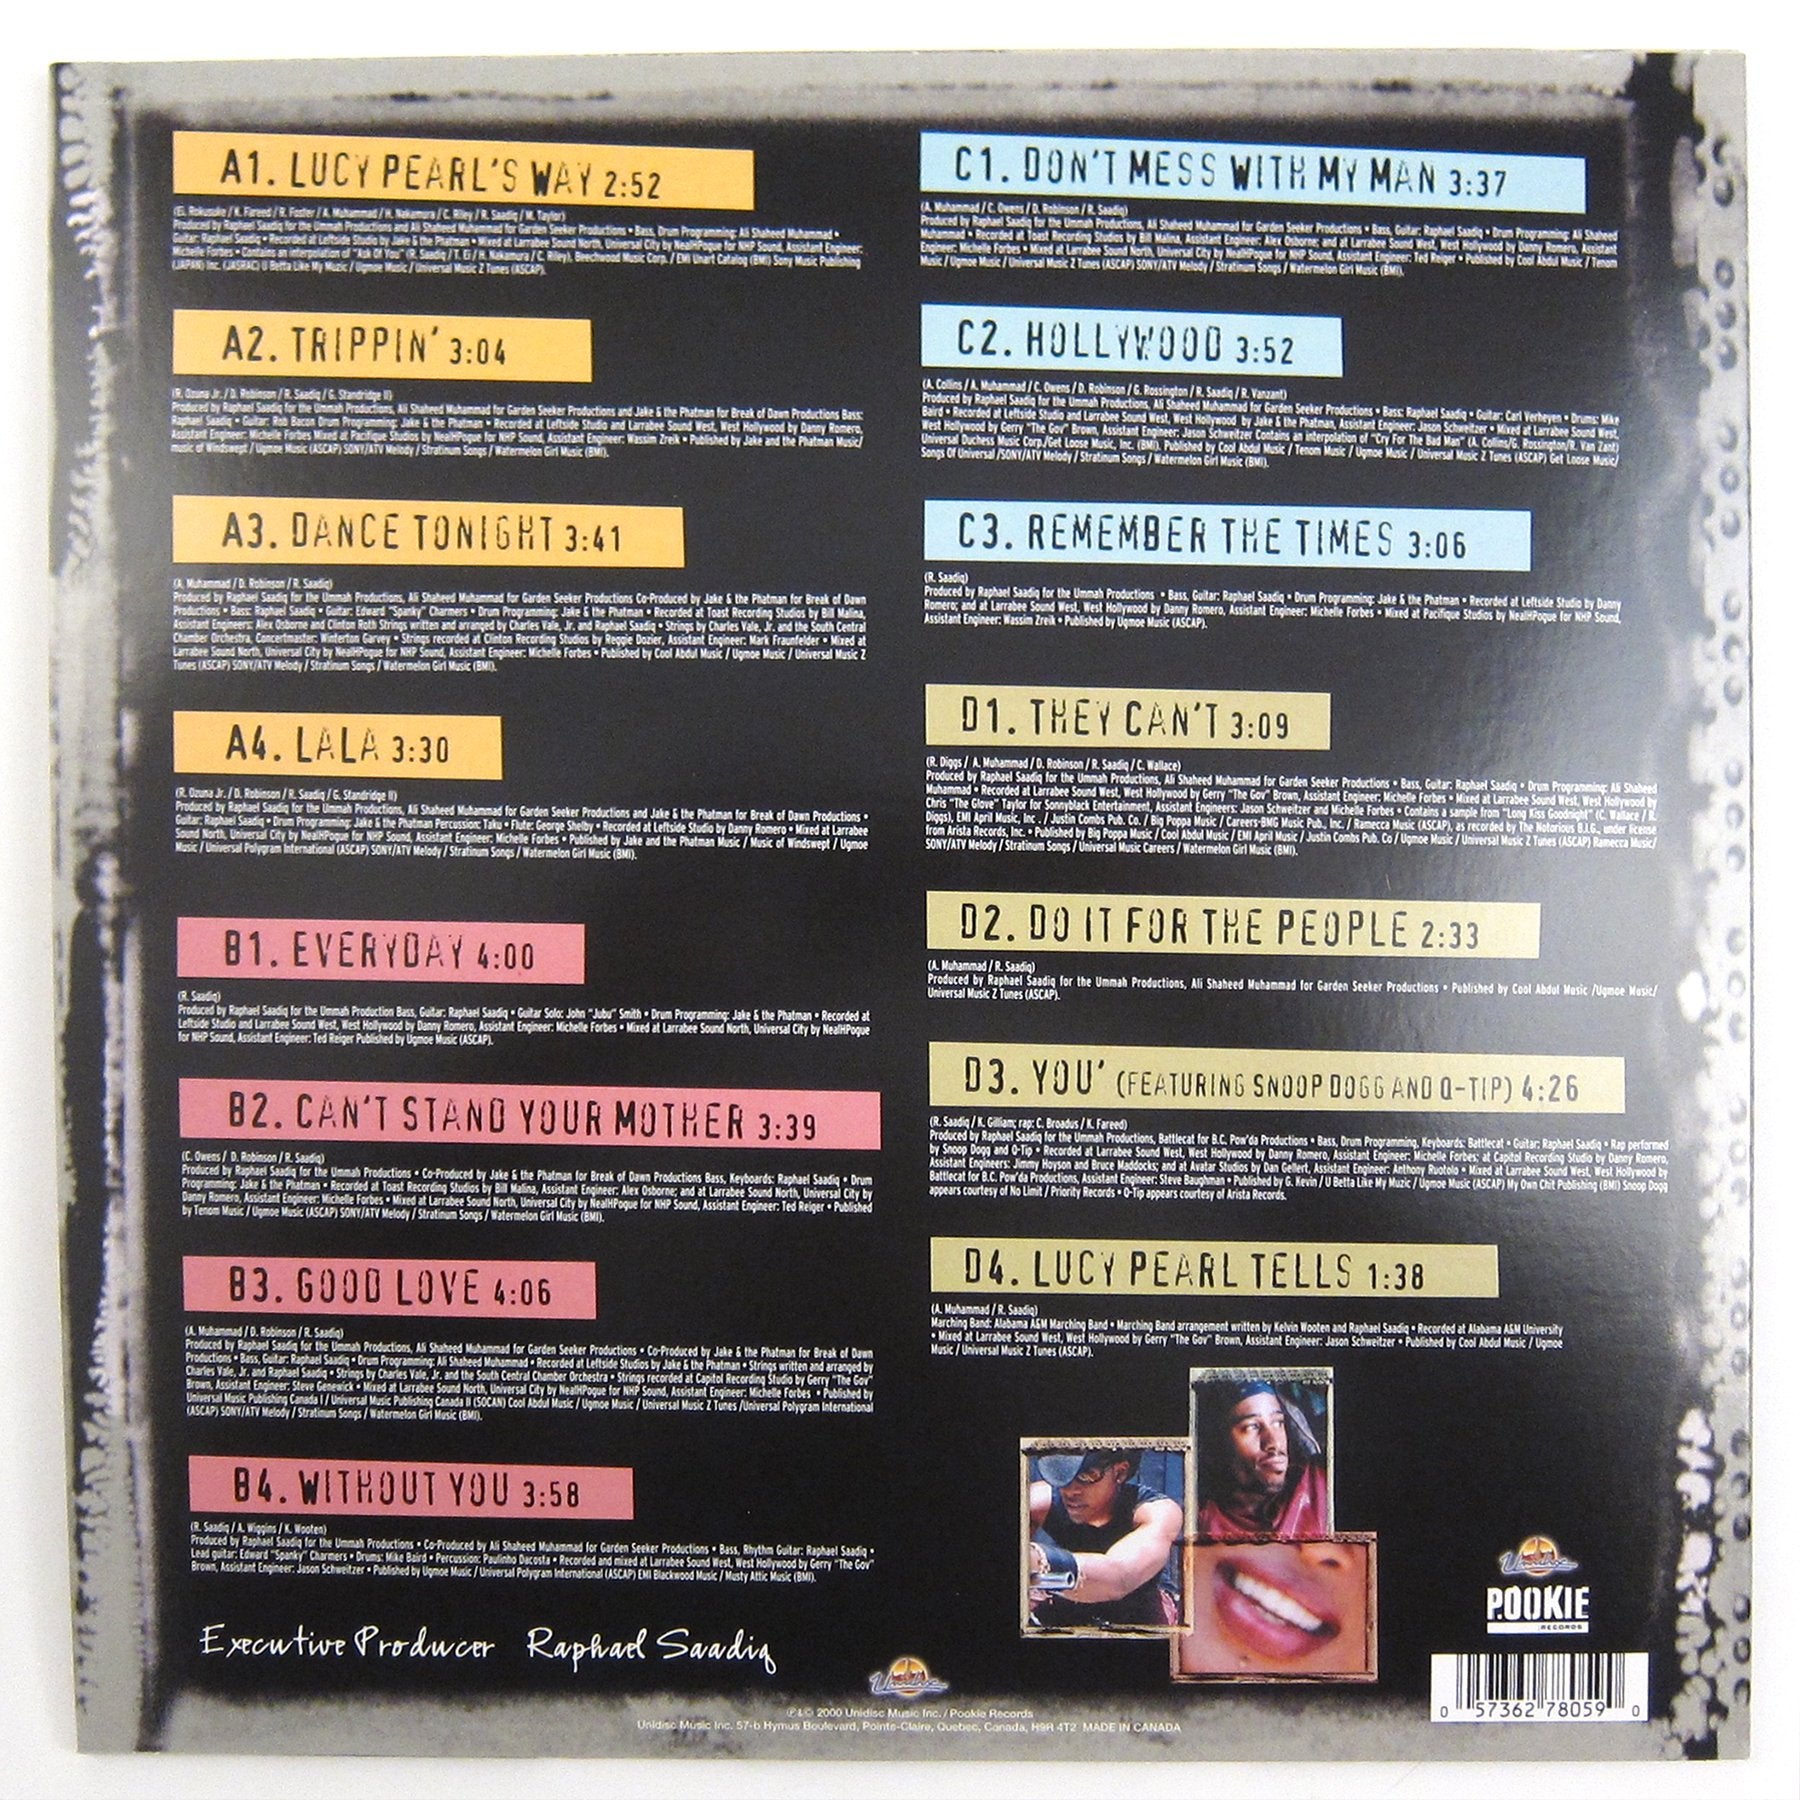 A1. LUCY PEARL'S WAY 2:52
(Ei. Rokusuke / K. Fareed / R. Foster / A. Muhammad / H. Nakamura / C. Riley / R. Saadiq / M. Taylor)
Produced by Raphael Saadiq for the Ummah Productions and Ali Shaheed Muhammad for Garden Seeker Productions • Bass, Drum Programming: Ali Shaheed Muhammad •
Guitar: Raphael Saadiq • Recorded at Leftside Studio by Jake & the Phatman • Mixed at Larrabee Sound North, Universal City by NealHPogue for NHP Sound, Assistant Engineer:
Michelle Forbes • Contains an interpolation of "Ask Of You" (R. Saadiq / T. Ei / H. Nakamura / C. Riley), Beechwood Music Corp. / EMI Unart Catalog (BMI) Sony Music Publishing
(JAPAN) Inc. (JASRAC) U Betta Like My Muzic / Ugmoe Music / Universal Music Z Tunes (ASCAP).
A2. TRIPPIN' 3:04
(R. Ozuna Jr. / D. Robinson / R. Saadiq / G. Standridge II)
Produced by Raphael Saadiq for the Ummah Productions, Ali Shaheed Muhammad for Garden Seeker Productions and Jake & the Phatman for Break of Dawn Productions Bass:
Raphael Saadiq • Guitar: Rob Bacon Drum Programming: Jake & the Phatman • Recorded at Leftside Studio and Larrabee Sound West, West Hollywood by Danny Romero,
Assistant Engineer: Michelle Forbes Mixed at Pacifique Studios by NealHPogue for NHP Sound, Assistant Engineer: Wassim Zreik • Published by Jake and the Phatman Music/
music of Windswept / Ugmoe Music (ASCAP) SONY/ATV Melody / Stratinum Songs / Watermelon Girl Music (BMI).
A3. DANCE TONIGHT 3:41
(A. Muhammad / D. Robinson / R. Saadiq)
Produced by Raphael Saadiq for the Ummah Productions, Ali Shaheed Muhammad for Garden Seeker Productions Co-Produced by Jake & the Phatman for Break of Dawn
Productions • Bass: Raphael Saadiq • Guitar: Edward "Spanky" Charmers • Drum Programming: Jake & the Phatman • Recorded at Toast Recording Studios by Bill Malina,
Assistant Engineers: Alex Osborne and Clinton Roth Strings written and arranged by Charles Vale, Jr. and Raphael Saadiq • Strings by Charles Vale, Jr. and the South Central
Chamber Orchestra, Concertmaster: Winterton Garvey • Strings recorded at Clinton Recording Studios by Reggie Dozier, Assistant Engineer: Mark Fraunfelder • Mixed at
Larrabee Sound North, Universal City by NealHPogue for NHP Sound, Assistant Engineer: Michelle Forbes • Published by Cool Abdul Music / Ugmoe Music / Universal Music Z
Tunes (ASCAP) SONY/ATV Melody / Stratinum Songs / Watermelon Girl Music (BMI).
A4. LALA 3:30
(R. Ozuna Jr. / D. Robinson / R. Saadiq / G. Standridge II)
Produced by Raphael Saadiq for the Ummah Productions, Ali Shaheed Muhammad for Garden Seeker Productions and Jake & the Phatman for Break of Dawn Productions •
Guitar: Raphael Saadiq • Drum Programming: Jake & the Phatman Percussion: Taku • Flute: George Shelby • Recorded at Leftside Studio by Danny Romero • Mixed at Larrabee
Sound North, Universal City by NealHPogue for NHP Sound, Assistant Engineer: Michelle Forbes • Published by Jake and the Phatman Music / Music of Windswept / Ugmoe
Music / Universal Polygram International (ASCAP) SONY/ATV Melody / Stratinum Songs / Watermelon Girl Music (BMI).
B1. EVERYDAY 4:00
(R. Saadiq)
Produced by Raphael Saadiq for the Ummah Production Bass, Guitar: Raphael Saadiq • Guitar Solo: John "Jubu" Smith • Drum Programming: Jake & the Phatman • Recorded at
Leftside Studio and Larrabee Sound West, West Hollywood by Danny Romero, Assistant Engineer: Michelle Forbes • Mixed at Larrabee Sound North, Universal City by NealHPogue
for NHP Sound, Assistant Engineer: Ted Reiger Published by Ugmoe Music (ASCAP).
B2. CAN'T STAND YOUR MOTHER 3:39
(C. Owens / D. Robinson / R. Saadiq)
Produced by Raphael Saadiq for the Ummah Productions • Co-Produced by Jake & the Phatman for Break of Dawn Productions Bass, Keyboards: Raphael Saadiq • Drum
Programming: Jake & the Phatman • Recorded at Toast Recording Studios by Bill Malina, Assistant Engineer: Alex Osborne; and at Larrabee Sound North, Universal City by
Danny Romero, Assistant Engineer: Michelle Forbes • Mixed at Larrabee Sound North, Universal City by NealHPogue for NHP Sound, Assistant Engineer: Ted Reiger • Published
by Tenom Music / Ugmoe Music (ASCAP) SONY/ATV Melody / Stratinum Songs / Watermelon Girl Music (BMI).
B3. GOOD LOVE 4:06
(A. Muhammad / D. Robinson / R. Saadiq)
Produced by Raphael Saadiq for the Ummah Productions, Ali Shaheed Muhammad for Garden Seeker Productions • Co-Produced by Jake & the Phatman for Break of Dawn
Productions • Bass, Guitar: Raphael Saadiq • Drum Programming: Ali Shaheed Muhammad • Recorded at Leftside Studios by Jake & the Phatman • Strings written and arranged by
Charles Vale, Jr. and Raphael Saadiq • Strings by Charles Vale, Jr. and the South Central Chamber Orchestra • Strings recorded at Capitol Recording Studio by Gerry "The Gov"
Brown, Assistant Engineer: Steve Genewick • Mixed at Larrabee Sound North, Universal City by NealHPogue for NHP Sound, Assistant Engineer: Michelle Forbes • Published by
Universal Music Publishing Canada I / Universal Music Publishing Canada II (SOCAN) Cool Abdul Music / Ugmoe Music / Universal Music Z Tunes /Universal Polygram International
(ASCAP) SONY/ATV Melody / Stratinum Songs / Watermelon Girl Music (BMI).
B4. WITHOUT YOU 3:58
(R. Saadiq / A. Wiggins / K. Wooten)
Produced by Raphael Saadiq for the Ummah Productions • Co-Produced by Ali Shaheed Muhammad for Garden Seeker Productions • Bass, Rhythm Guitar: Raphael Saadiq •
Lead guitar: Edward "Spanky" Charmers • Drums: Mike Baird • Percussion: Paulinho Dacosta • Recorded and mixed at Larrabee Sound West, West Hollywood by Gerry "The Gov"
Brown, Assistant Engineer: Jason Schweitzer • Published by Ugmoe Music / Universal Polygram International (ASCAP) EMI Blackwood Music / Musty Attic Music (BMI).
Executive Producer Raphael Saadiq
C1. DON'T MESS WITH MY MAN 3:37
(A. Muhammad / C. Owens / D. Robinson / R. Saadiq)
Produced by Raphael Saadiq for the Ummah Productions, Ali Shaheed Muhammad for Garden Seeker Productions • Bass, Guitar: Raphael Saadiq • Drum Programming: Ali Shaheed
Muhammad • Recorded at Toast Recording Studios by Bill Malina, Assistant Engineer: Alex Osborne; and at Larrabee Sound West, West Hollywood by Danny Romero, Assistant
Engineer: Michelle Forbes • Mixed at Larrabee Sound North, Universal City by NealHPogue for NHP Sound, Assistant Engineer: Ted Reiger • Published by Cool Abdul Music / Tenom
Music / Ugmoe Music / Universal Music Z Tunes (ASCAP) SONY/ATV Melody / Stratinum Songs / Watermelon Girl Music (BMI).
C2. HOLLYWOOD 3:52
(A. Collins / A. Muhammad / C. Owens / D. Robinson / G. Rossington / R. Saadiq / R. Vanzant)
Produced by Raphael Saadiq for the Ummah Productions, Ali Shaheed Muhammad for Garden Seeker Productions • Bass: Raphael Saadiq • Guitar: Carl Verheyen • Drums: Mike
Baird • Recorded at Leftside Studio and Larrabee Sound West, West Hollywood by Jake & the Phatman, Assistant Engineer: Jason Schweitzer • Mixed at Larrabee Sound West,
West Hollywood by Gerry "The Gov" Brown, Assistant Engineer: Jason Schweitzer Contains an interpolation of "Cry For The Bad Man" (A. Collins/G. Rossington/R. Van Zant)
Universal Duchess Music Corp./Get Loose Music, Inc. (BMI), Published by Cool Abdul Music / Tenom Music / Ugmoe Music / Universal Music Z Tunes (ASCAP) Get Loose Music/
Songs Of Universal /SONY/ATV Melody / Stratinum Songs / Watermelon Girl Music (BMI).
C3. REMEMBER THE TIMES 3:06
(R. Saadiq)
Produced by Raphael Saadiq for the Ummah Productions • Bass, Guitar: Raphael Saadiq • Drum Programming: Jake & the Phatman • Recorded at Leftside Studio by Danny
Romero; and at Larrabee Sound West, West Hollywood by Danny Romero, Assistant Engineer: Michelle Forbes • Mixed at Pacifique Studios by NealHPogue for NHP Sound,
Assistant Engineer: Wassim Zreik • Published by Ugmoe Music (ASCAP).
D1. THEY CAN'T 3:09
(R. Diggs / A. Muhammad / D. Robinson / R. Saadiq / C. Wallace)
Produced by Raphael Saadiq for the Ummah Productions, Ali Shaheed Muhammad for Garden Seeker Productions • Bass, Guitar: Raphael Saadiq • Drum Programming: Ali Shaheed
Muhammad • Recorded at Larrabee Sound West, West Hollywood by Gerry "The Gov" Brown, Assistant Engineer: Michelle Forbes • Mixed at Larrabee Sound West, West Hollywood by
Chris "The Glove" Taylor for Sonnyblack Entertainment, Assistant Engineers: Jason Schweitzer and Michelle Forbes • Contains a sample from "Long Kiss Goodnight" (C. Wallace / R.
Diggs), EMI April Music, Inc . / Justin Combs Pub. Co. / Big Poppa Music / Careers-BMG Music Pub., Inc. / Ramecca Music (ASCAP), as recorded by The Notorious B.I.G., under license
from Arista Records, Inc. • Published by Big Poppa Music / Cool Abdul Music / EMI April Music / Justin Combs Pub. Co / Ugmoe Music / Universal Music Z Tunes (ASCAP) Ramecca Music/
SONY/ATV Melody / Stratinum Songs / Universal Music Careers / Watermelon Girl Music (BMI).
D2. DO IT FOR THE PEOPLE 2:33
(A. Muhammad / R. Saadiq)
Produced by Raphael Saadiq for the Ummah Productions, Ali Shaheed Muhammad for Garden Seeker Productions • Published by Cool Abdul Music /Ugmoe Music/
Universal Music Z Tunes (ASCAP).
D3. YOU' (FEATURING SNOOP DOGG AND Q-TIP) 4:26
(R. Saadiq / K. Gilliam; rap: C. Broadus / K. Fareed)
Produced by Raphael Saadiq for the Ummah Productions, Battlecat for B.C. Pow'da Productions • Bass, Drum Programming, Keyboards: Battlecat • Guitar: Raphael Saadiq • Rap performed
by Snoop Dogg and Q-Tip • Recorded at Larrabee Sound West, West Hollywood by Danny Romero, Assistant Engineer: Michelle Forbes; at Capitol Recording Studio by Danny Romero,
Assistant Engineers: Jimmy Hoyson and Bruce Maddocks; and at Avatar Studios by Dan Gellert, Assistant Engineer: Anthony Ruotolo • Mixed at Larrabee Sound West, West Hollywood by
Battlecat for B.C. Pow'da Productions, Assistant Engineer: Steve Baughman • Published by G. Kevin / U Betta Like My Muzic / Ugmoe Music (ASCAP) My Own Chit Publishing (BMI) Snoop Dogg
appears courtesy of No Limit / Priority Records • Q-Tip appears courtesy of Arista Records.
D4. LUCY PEARL TELLS 1:38
(A. Muhammad / R. Saadiq)
Marching Band: Alabama A&M Marching Band • Marching Band arrangement written by Kelvin Wooten and Raphael Saadiq • Recorded at Alabama A&M University
• Mixed at Larrabee Sound West, West Hollywood by Gerry "The Gov" Brown, Assistant Engineer: Jason Schweitzer • Published by Cool Abdul Music / Ugmoe
Music / Universal Music Z Tunes (ASCAP).
Unidisc
POOKIE
RECORDS
0 57362 78059 0
Unidisc
℗&© 2000 Unidisc Music Inc. / Pookie Records
Unidisc Music Inc. 57-b Hymus Boulevard, Pointe-Claire, Quebec, Canada, H9R 4T2 MADE IN CANADA